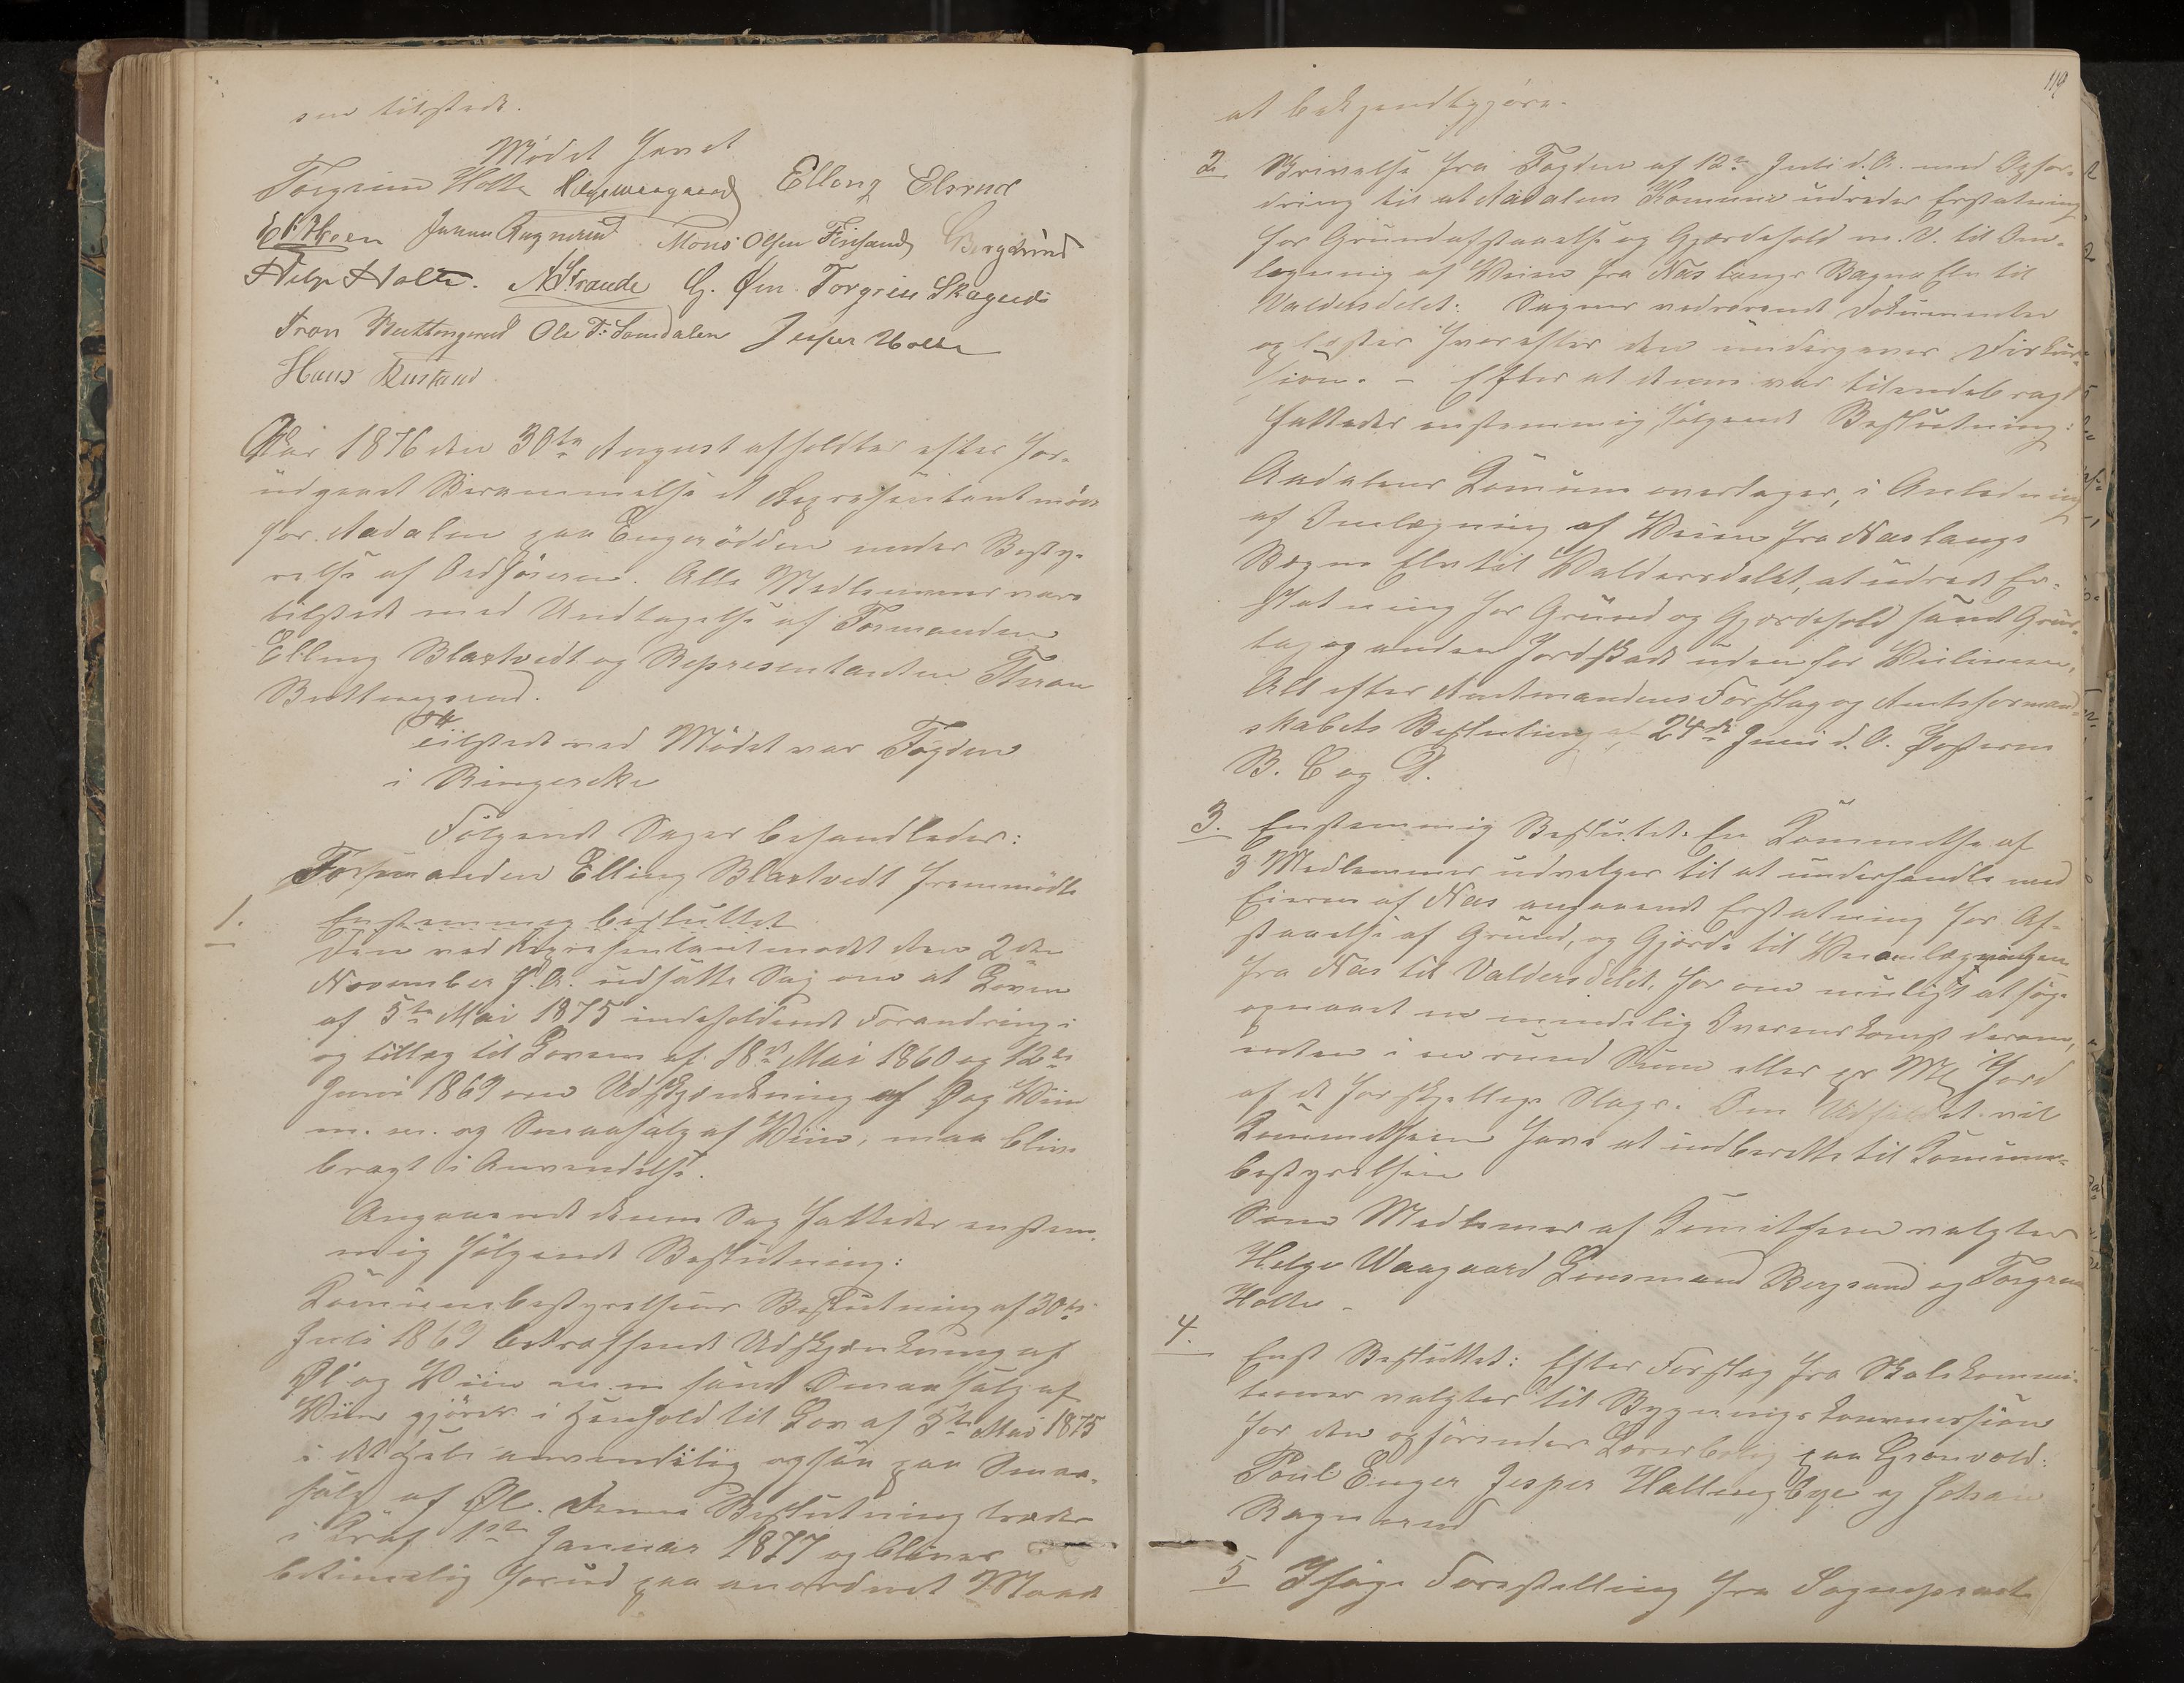 var tilstede.
Mødet hævet
Torgrim Holte Helge Waagaard Elling Elsrud
E Heen Johan Ragnerud Mons Olsen Finsand Bergsund
Helge Holte. A Strande G. Øen Torgrim Skagnæs
Tron Buttingsrud Ole T. Somdalen Jesper Holte
Hans Rustand
Aar 1876 den 30te August afholdtes efter for-
udgaaet Berammelse et Repræsentantmøde
for Aadalen paa Engerodden under Besty-
relse af Ordføreren. Alle Medlemmer vare
tilstede med Undtagelse af Formanden
Elling Blaxtvedt og Representanten Thron
Buttingsrud.
Tilstede ved Mødet var Fogden
i Ringerike
Følgende Sager behandledes:
Formanden Elling Blaxtvedt fremmødte
1. Enstemmig besluttet
Den ved Repræsentantmødet den 2den
November f. A. udsatte Sag om at Loven
af 5te Mai 1875 indeholdende Forandring i
og tillæg til Lovene af 18de Mai 1860 og 12te
Juni 1869 om Udskjænkning af Øl og Viin
m. m. og Smaasalg af Viin, maa blive
bragt i Anvendelse.
Angaaende denne Sag fattedes enstem-
mig følgende Beslutning:
Komunebestyrelsens Beslutning af 30te
Juli 1869 betræffende Udskjænkning af
Øl og Viin m. m samt Smaasalg af
Viin gjøres i Henhold til Lov af 5te Mai 1875
i det Hele anvendelig ogsaa paa Smaa-
salg af Øl. Denne Beslutning træder
i Kraf 1ste Januar 1877 og bliver
betimelig forud paa anordnet Maade
119
at bekjendtgjøre.
2. Skrivelse fra Fogden af 12te Juli d. A. med Opfor-
dring til at Aadalens Komune udreder Erstatning
for Grundafstaaelse og Gjærdehold m. V. til Om-
lægning af Veien fra Næs langs Bægna Elv til
Valdersdelet: Sagens vedrørende Dokumenter
oplæstes hvorefter den undergaves Diskus-
sion. - Efter at denne var tilendebragt
fattedes enstemmig følgende Beslutning:
Aadalens Komune overtager, i Anledning
af Omlægning af Veien fra Næs langs
Bægna Elv til Valdersdelet, at udrede Er-
statning for Grund og Gjærdehold samt Grus-
tag og anden Jordskade udenfor Veilinien,
Alt efter Amtmandens Forslag og Amtsformand-
skabets Beslutning af 24de Juni d. A. Posterne
B. C og D.
3. Enstemmig Beslutet: En Kommite af
3 Medlemmer udvælges til at underhandle med
Eieren af Næs angaaende Erstatning for Af-
staaelse af Grund, og Gjærde til Veiomlægningen
fra Næs til Valdersdelet, for om muligt at søge
opnaaet en mindelig Overenskomst derom,
enten i en rund Sum eller pr Ml Jord
af de forskjellige Slags. Om Udfaldet vil
Kommitheen have at indberette til Komune-
bestyrelsen
Som Medlemer af Komitheen valgtes
Helge Waagaard Lensmand Bergsund og Torgrim
Holte -
4. Enst Besluttet: Efter Forslag fra Skolekommi-
sionen valgtes til Bygningskommission
for den opførendes Lærerbolig paa Grønvold:
Poul Enger Jesper Hallingbye og Johan
Ragnerud
5 Ifølge Forestilling fra Sognepræst